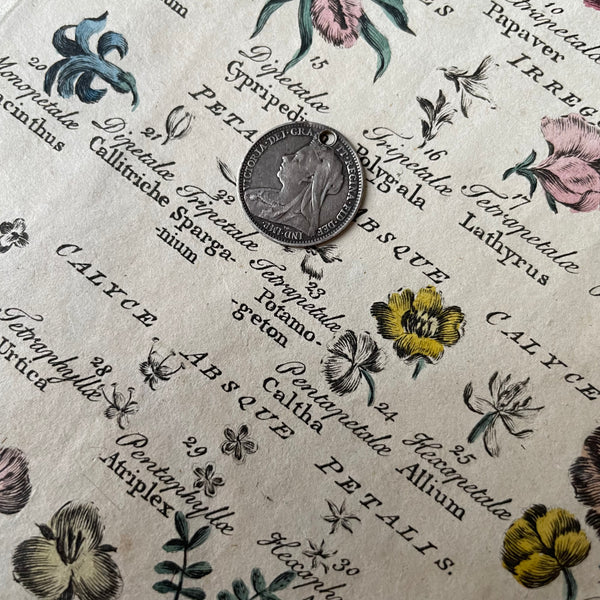 10
Tetrapetalæ
Papaver
IRREG
15
Dipetalæ
Cypripedi
PETA
S
16
Tripetalæ
Polygala
17
Tetrapetalæ
Lathyrus
20
Monopetalæ
acinthus
21
Dipetalæ
Callitriche
22
Tripetalæ
Sparga-
-nium
VICTORIA·DEI·GRA·
·REGINA·FID·DEF·
IND·IMP·
ABSQUE
23
Tetrapetalæ
Potamo-
-geton
24
Pentapetalæ
Caltha
25
Hexapetalæ
Allium
CALYCE
ABSQUE
PETALIS.
CALYCE
Tetraphyllæ
Urtica
28
29
Pentaphyllæ
Atriplex
30
Hexaph